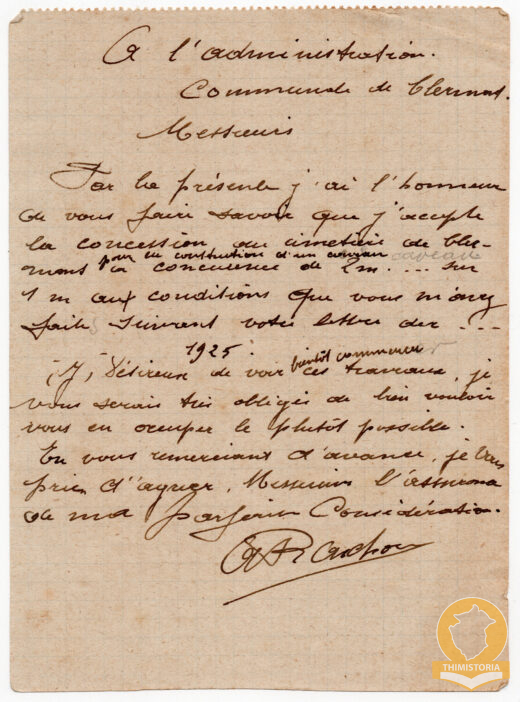 A l'administration.
Communale de Clermont.
Messieurs
Par la présente j'ai l'honneur
de vous faire savoir que j'accepte
la concession au cimetière de Cler-
pour la construction d'un caveau caveau
mont à concurence de 2m.... sur
1 m aux conditions que vous m'avez
faites suivant votre lettre der ...
1925.
Désireux de voir bientôt commencer ces travaux, je
vous serais très obligés de bien vouloir
vous en occuper le plutôt possible.
En vous remerciant d'avance, je vous
prie d'agréer, Messieurs l'assurance
de ma parfaite Considération.
THIMISTORIA